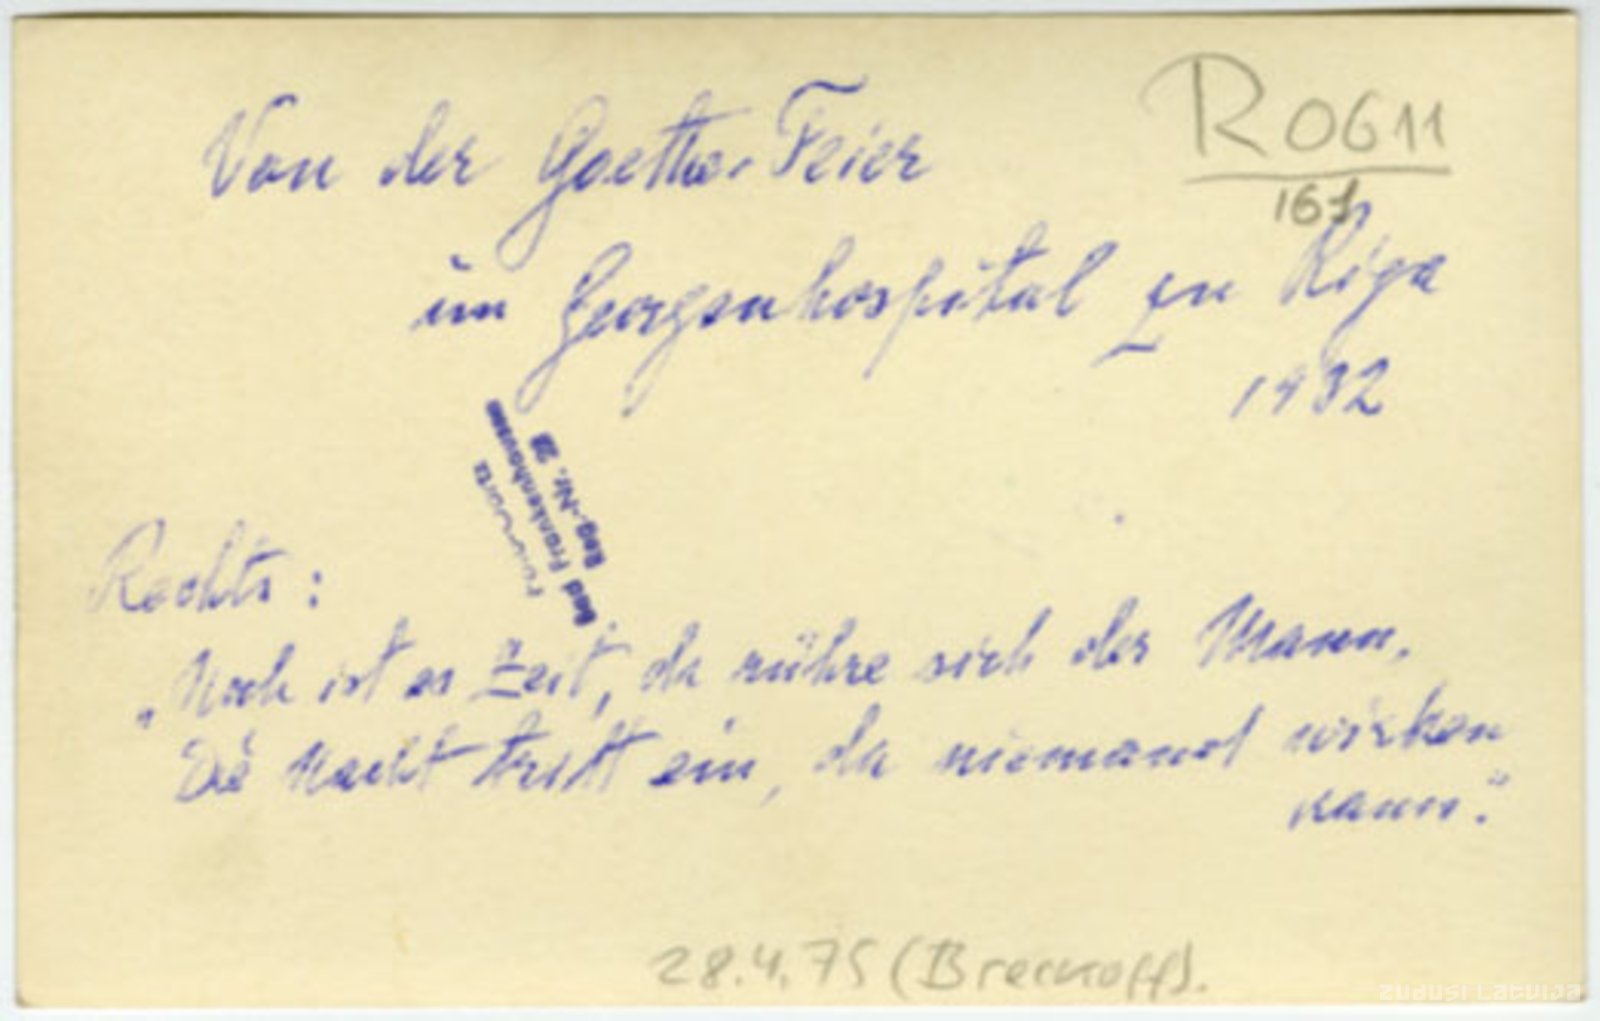 R 0611
161
Von der Goethe-Feier
im Georgenhospital zu Riga
1932
Bad Frankenhausen
Reg.-Nr. 28
Rechts:
„Noch ist es Zeit, da rühre sich der Mann,
Die Nacht tritt ein, da niemand wirken
kann."
28.4.75 (Breckoff).
zudusi Latvija